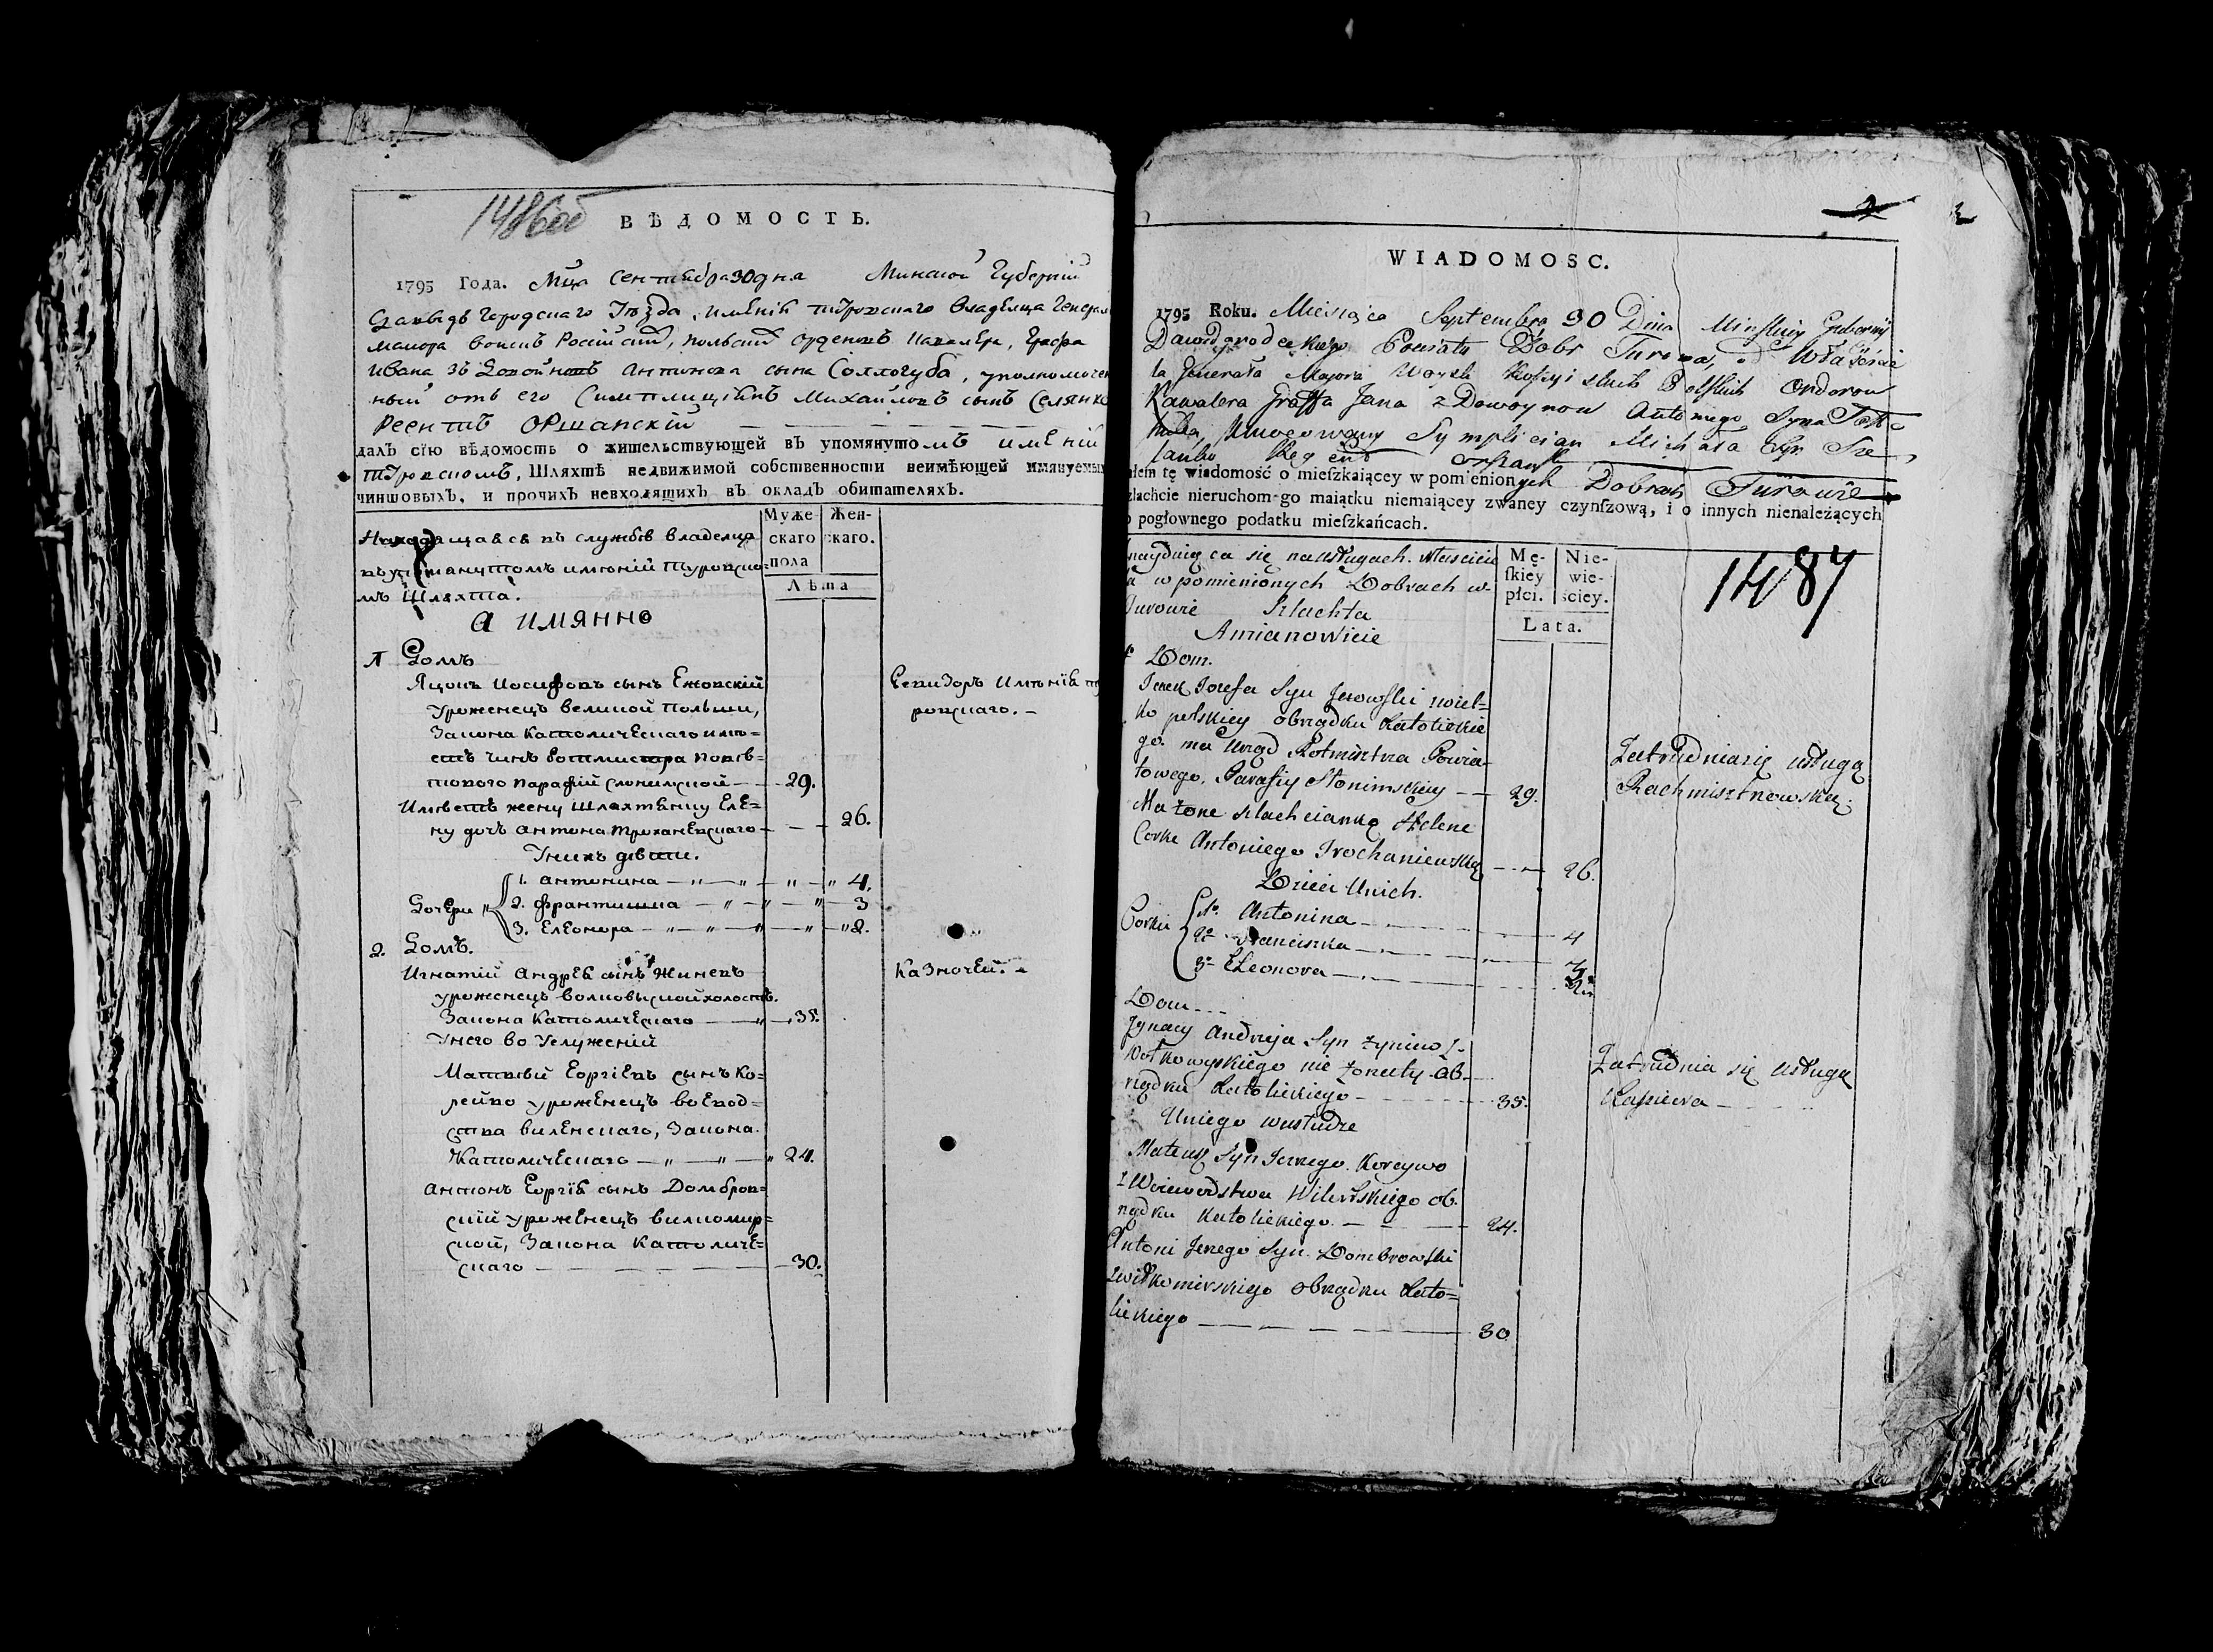 1486об
ВѢДОМОСТЬ.
1795 Года. Мца Сентября 30 дня Минской Губернїи
Давыдъ Городскаго Уѣзда, имѣнiя туровскаго владѣлца Генерал
маиора войскъ Россiйскихъ, польскихъ орденовъ Кавалера, Графа
Ивана зъ Довойновъ Антонова сына Соллогуба, уполномочен
ный отъ его Симплицїянъ Михайловъ сынъ Селянко
Реентъ Оршанскiй
далъ сїю вѣдомость о жительствующей въ упомянутомъ имѣнiи
туровскомъ, Шляхтѣ недвижимой собственности неимѣющей имянуемых
чиншовыхъ, и прочихъ невходящихъ въ окладъ обитателяхъ.
Муже- Жен-
скаго скаго.
пола
Лѣта
Находящаяся въ службѣ владелца
въ упомянутомъ имѣнiи Туровско=
мъ Шляхта.
А ИМЯННО
1 Домъ
Яцонъ Иосифовъ сынъ Ежовскiй
уроженецъ великой польши,
Закона Католическаго имѣ=
етъ чинъ Ротмистра повѣ=
тового парафiи слонимской 29.
Имѣетъ жену шляхтянку Еле=
ну дочь антона Троханевскаго 26.
У нихъ дѣти.
Дочери
1. антонина 4.
2. франтишка 3
3. Елеонора 2.
Ревизоръ имѣнїя ту
ровскаго.
2. Домъ.
Игнатiй Андрея сынъ Жиневъ
уроженецъ волковыской холостъ.
Закона Католическаго 35.
У него во Услуженiи
Матвѣй Еоргiевъ сынъ Ко=
рейво уроженецъ воевод=
ства виленскаго, Закона
Католическаго 24.
Антонъ Еоргїя сынъ Домбров=
скїй уроженецъ вилкомир=
ской, Закона Католиче=
скаго 30.
Казначей.
2
WIADOMOSC.
1795 Roku. Miesiąca Septembra 30 Dnia Minskiey Gubernij
Dawidgrodeckiego Powiatu Dobr Turowa, Właścicie
la Jenerała Majora Woysk Rossyiskich Polskich Orderow
Kawalera Graffa Jana z Dowoynow Antoniego Syna Soło
huba, Umocowany Symplician Michała Syn Sie
lanko Regent Orszansk
ałem tę wiadomość o mieſzkaiącey w pomienionych Dobrach Turowie
zlachcie nieruchom-go maiątku niemaiącey zwaney czynſzową, i o innych nienależących
o pogłownego podatku mieſzkańcach.
Mę- Nie-
ſkiey wie-
płci. ściey.
Lata.
1487
naydującą się na usługach Własciciela
w pomienionych Dobrach w
Turowie Szlachta
Amianowicie
Dom.
Jacek Jozefa Syn Jezowski zwiel=
ko polskiey obrządku Katolickie
go ma Urząd Rotmistrza Powia=
towego, Parafiy Słonimskiey 29.
Ma żone szlachcianką Helene
Corke Antoniego Trochaniewską 26.
Dzieci Unich.
Corki
1o. Antonina 4
2o Franciszka 3
3o Eleonora 2
Zatrudnia się usługą
Rachmistrzowską.
Dom
Jgnacy Andrzeja Syn Zyniew z
Wołkowyskiego nie żonaty Ob=
rządku Katolickiego 35.
Uniego wusłudze
Mateusz Syn Jerzego Koreywo
z Woiewodstwa Wileńskiego ob=
rządku Katolickiego 24.
Antoni Jerzego Syn Dombrowski
zwiłkomirskiego obrządku Kato=
lickiego 30
Zatrudnia się usługą
Kasiera